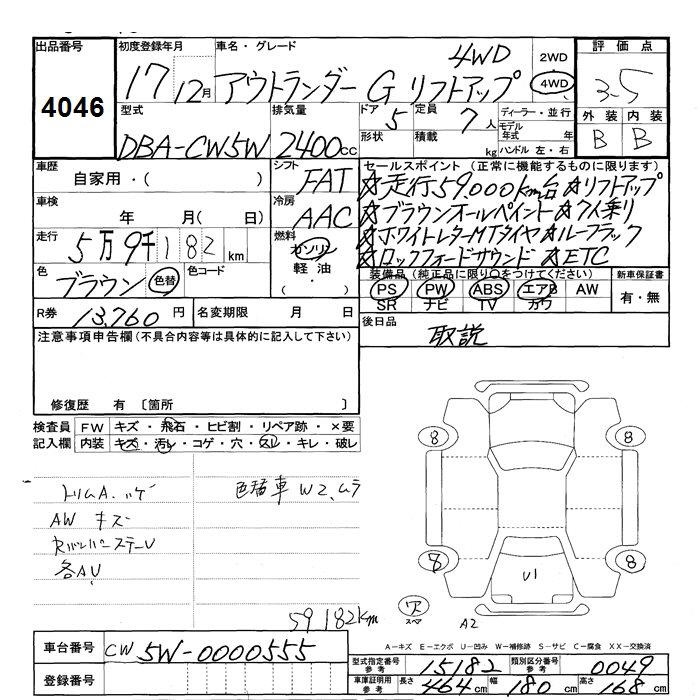 出品番号 初度登録年月 車名・グレード 4WD 2WD 評価点
4046 17 12月 アウトランダー G リフトアップ 4WD 3-5
型式 排気量 ドア 5 定員 7人 ディーラー・並行 外装 内装
DBA-CW5W 2400cc 形状 積載 kg モデル年式 年 B B
ハンドル 左・右
車歴 シフト セールスポイント (正常に機能するものに限ります)
自家用・( ) FAT ☆走行59,000km台☆リフトアップ
車検 冷房 ☆ブラウンオールペイント☆7人乗り
年 月( 日) AAC ☆ホワイトレターMTタイヤ☆ルーフラック
走行 燃料 ☆ロックフォードサウンド ☆ETC
5万9千182km ガソリン 装備品(純正品に限り○をつけてください) 新車保証書
色 色コード 軽油 PS PW ABS エアB AW 有・無
ブラウン 色替 ・( ) SR ナビ TV カワ
R券 13,760円 名変期限 月 日 後日品
注意事項申告欄(不具合内容等は具体的に記入して下さい) 取説
修復歴 有 〔箇所 〕
検査員 FW キズ・飛石・ヒビ割・リペア跡・×要
記入欄 内装 キズ・汚レ・コゲ・穴・スレ・キレ・破レ
トリムA.ハゲ 色替車 W2、ムラ
AW キズ
RバンパーステーU
各AU
8 8
7 8
U1
59182km
A2
A-キズ E-エクボ U-凹み W-補修跡 S-サビ C-腐食 XX-交換済
車台番号 CW 5W-0000555
型式指定番号 参考 15182 類別区分番号 参考 0049
登録番号 車庫証明用 参考 長さ 464cm 幅 180cm 高さ 168cm